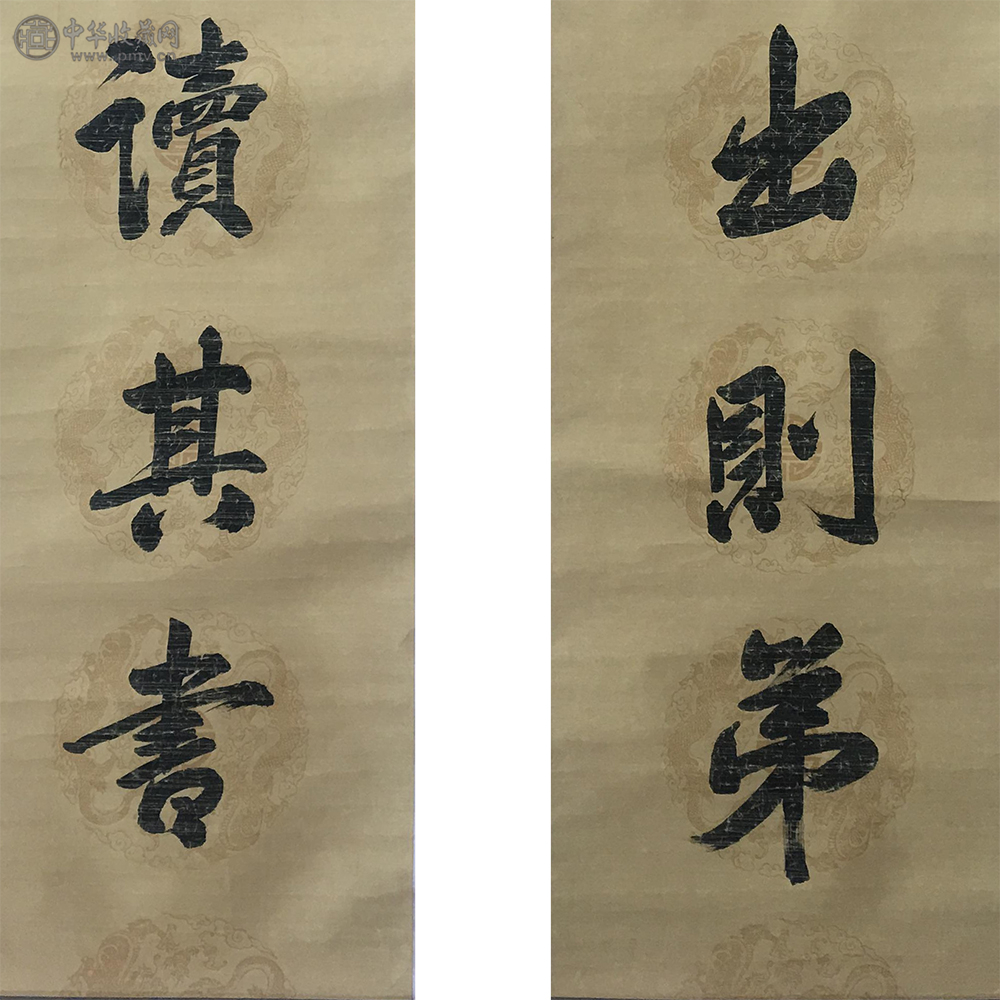 出則弟
讀其書
中华收藏网